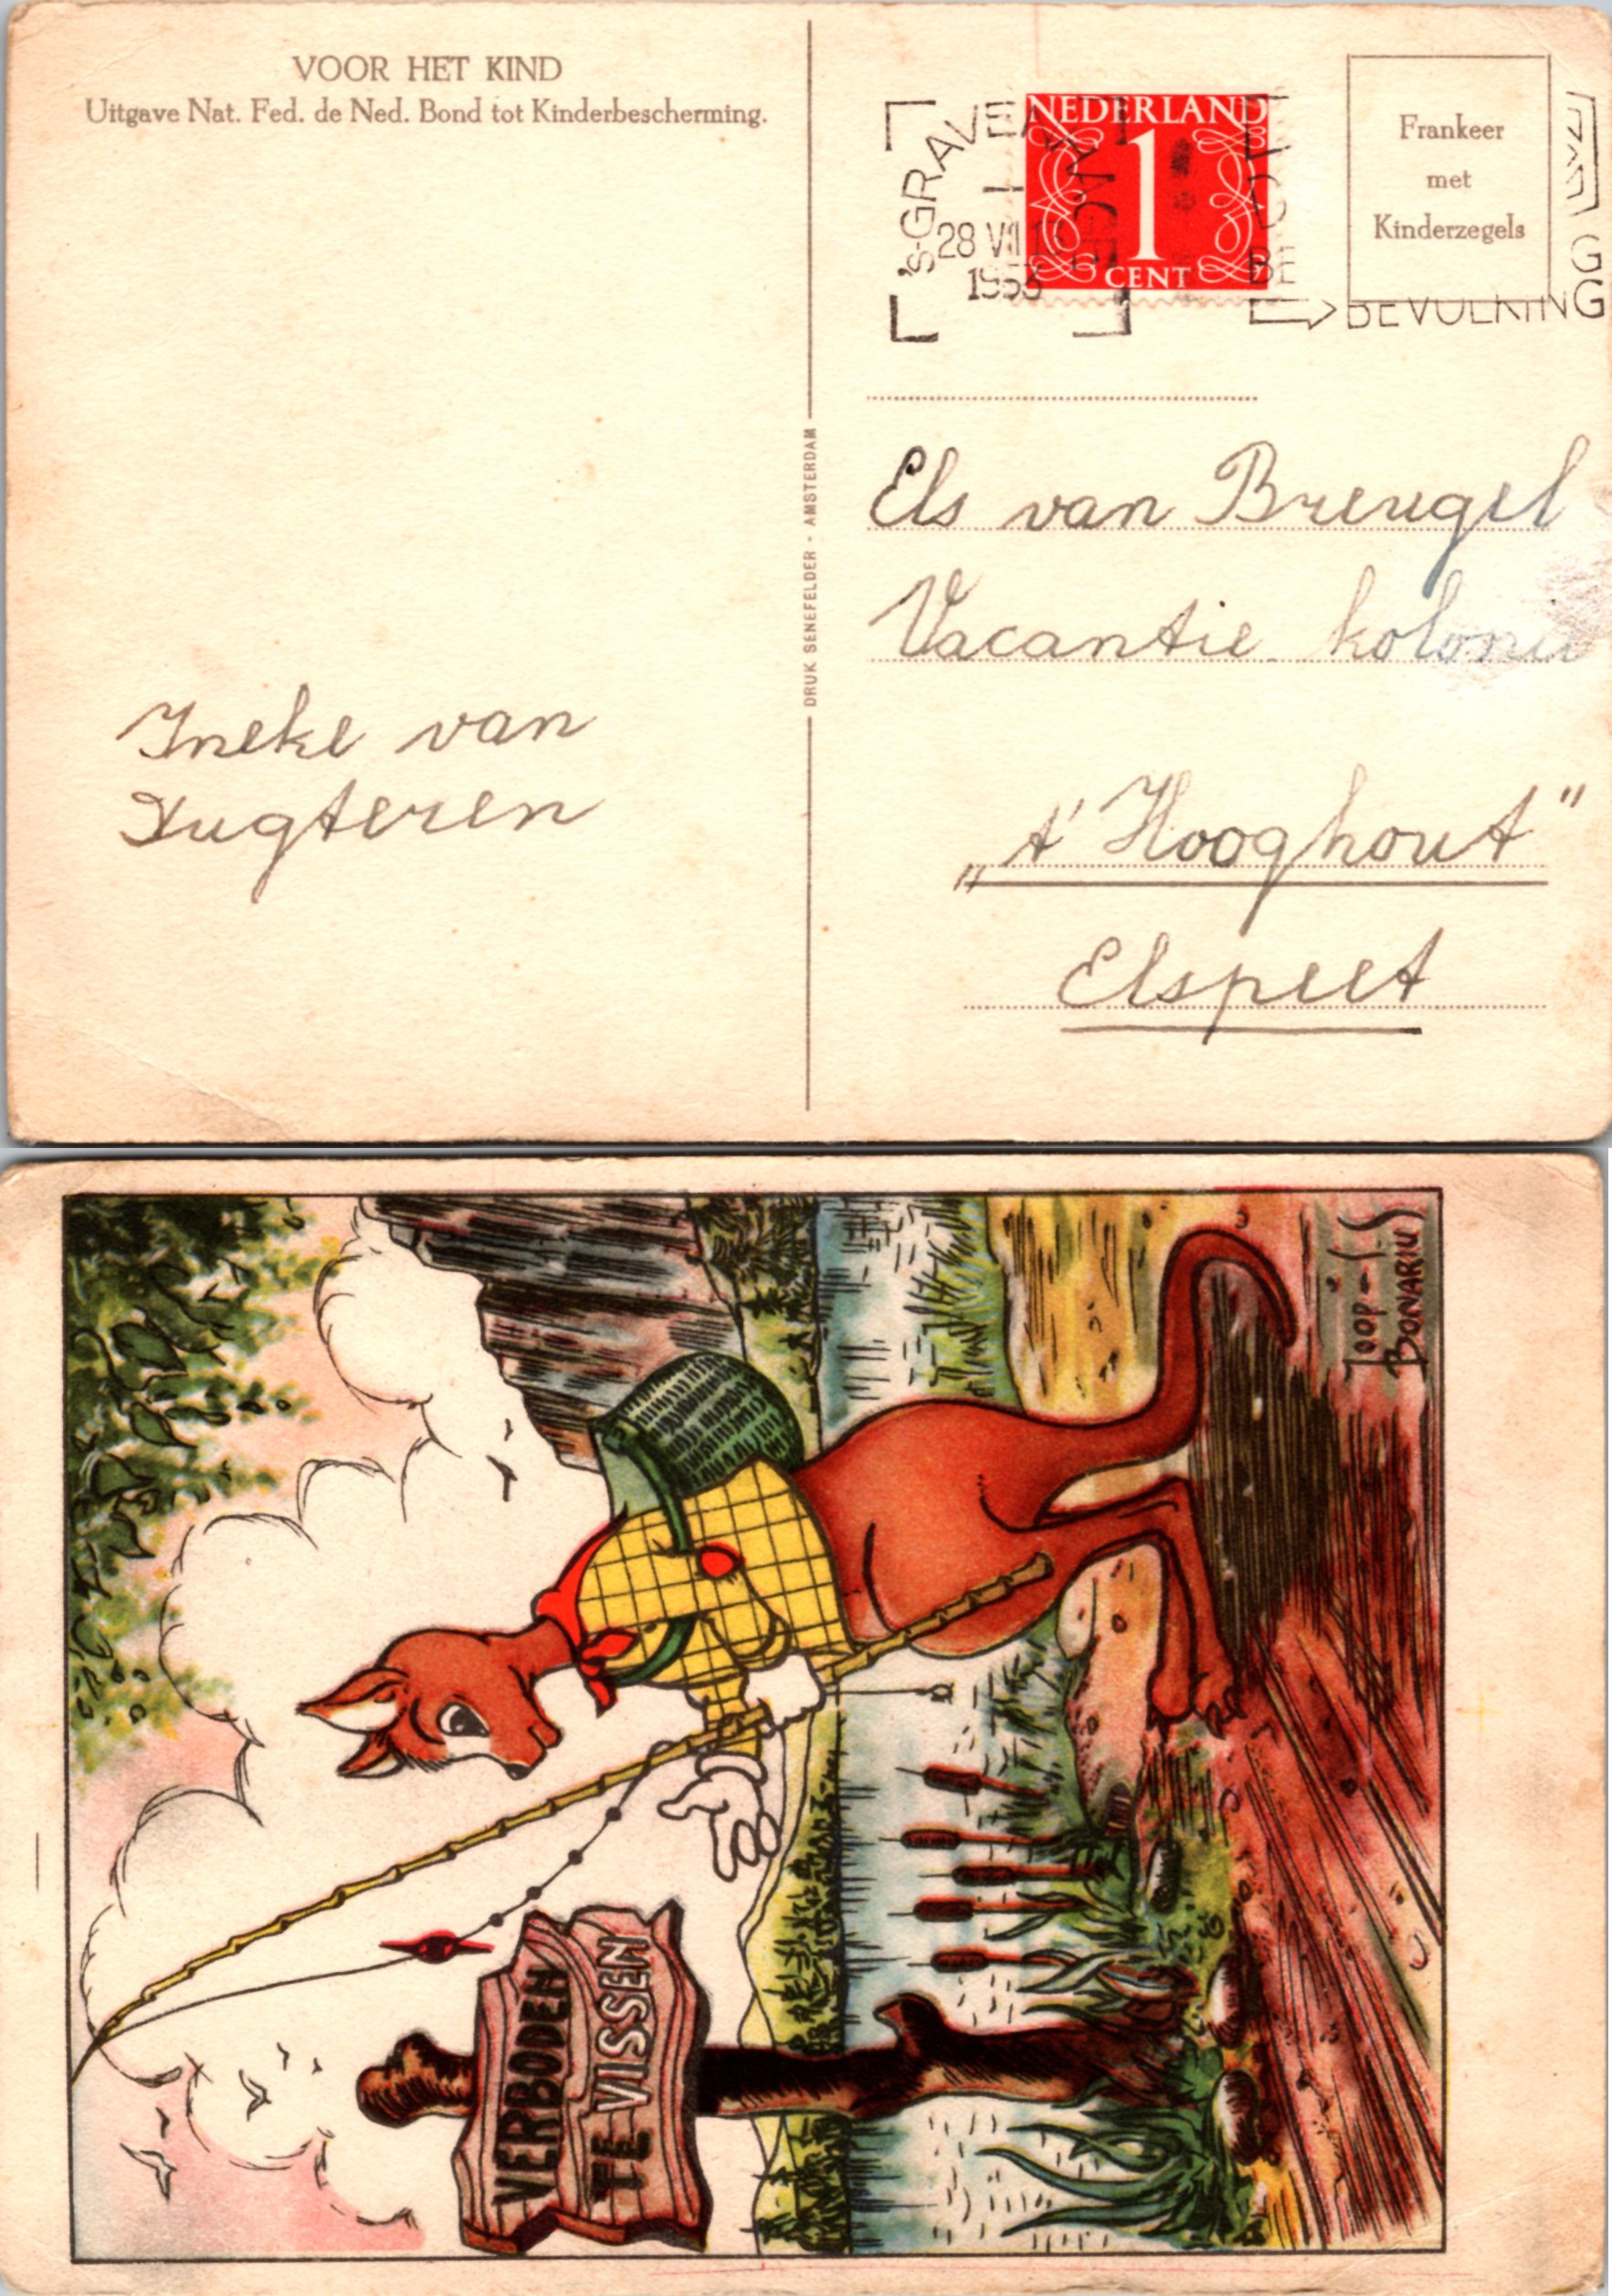 VOOR HET KIND
Uitgave Nat. Fed. de Ned. Bond tot Kinderbescherming.
NEDERLAND
1
CENT
's-GRAVENHAGE
1
28 VII
1953
BEVOLKING
Frankeer
met
Kinderzegels
DRUK SENEFELDER - AMSTERDAM
Els van Breugel
Vacantie kolonie
„t' Hooghout"
Elspeet
Ineke van
Lugteren
VERBODEN
TE VISSEN
BONARIUS